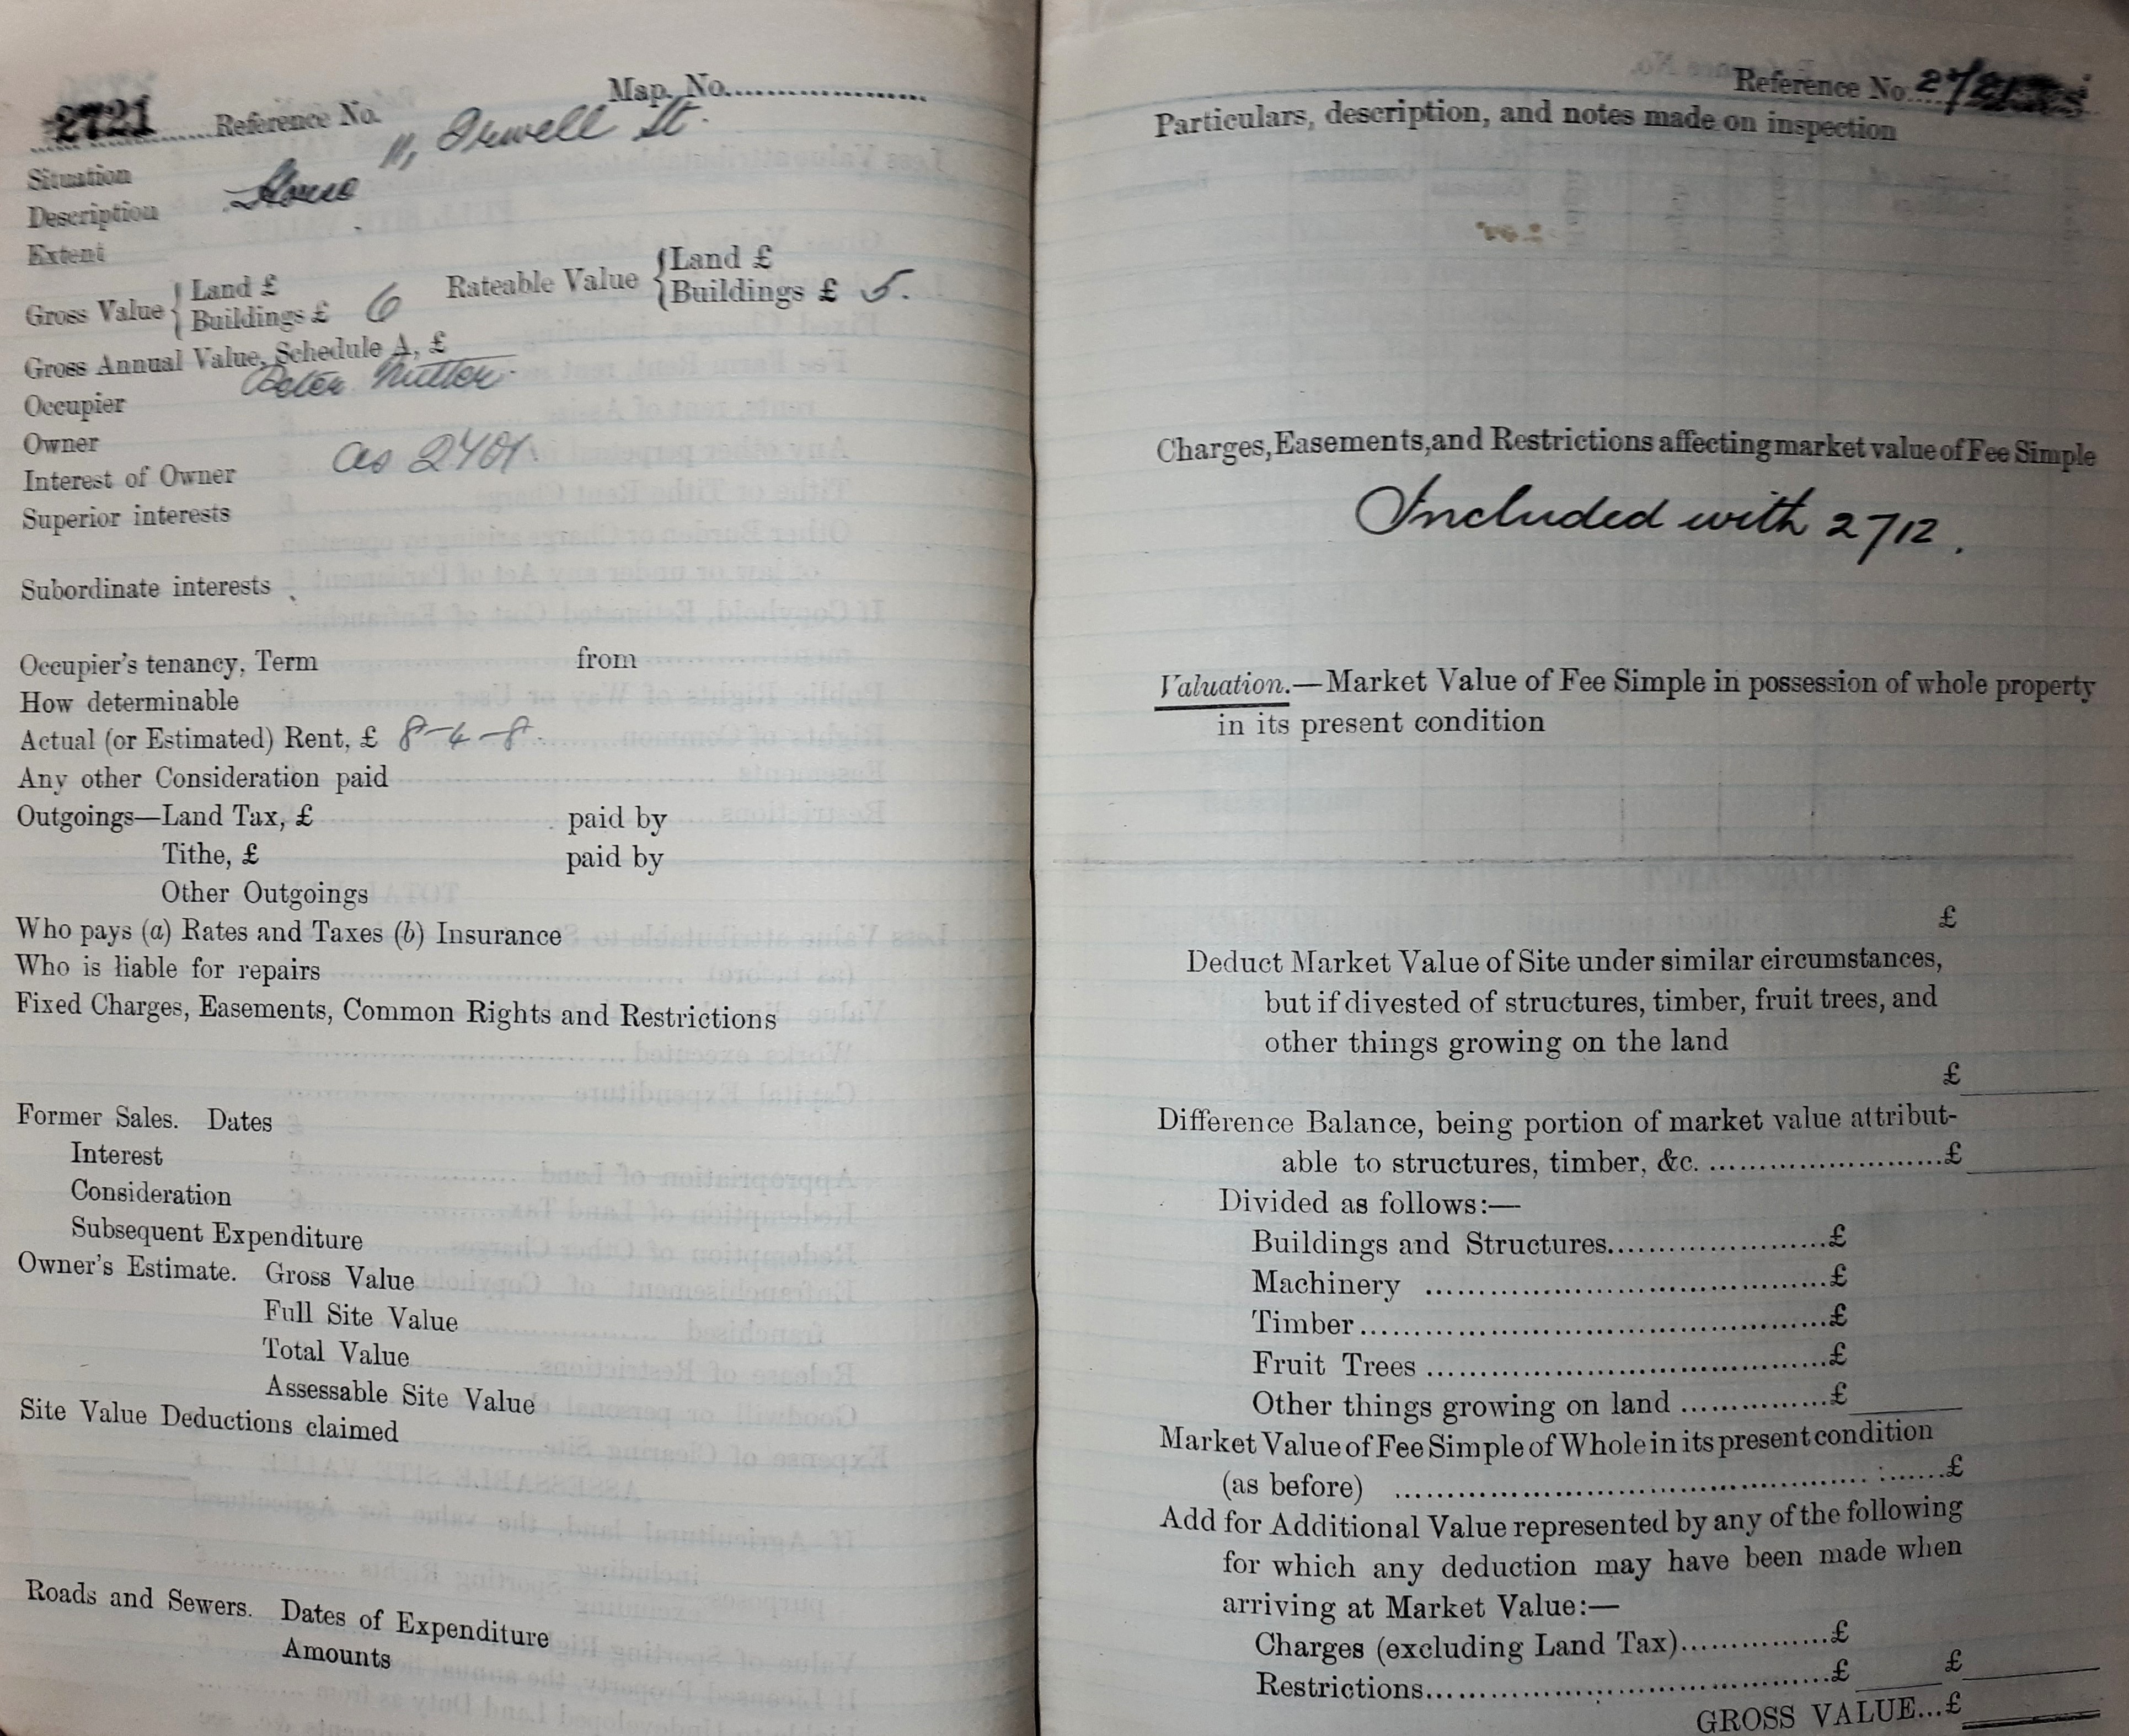 2721 Reference No. Map. No.
Situation 11, Irwell St.
Description House
Extent
Gross Value { Land £ Rateable Value { Land £
Buildings £ 6 Buildings £ 5.
Gross Annual Value, Schedule A, £
Occupier Peter Nutter.
Owner
Interest of Owner as 2701.
Superior interests
Subordinate interests
Occupier's tenancy, Term from
How determinable
Actual (or Estimated) Rent, £ 8-4-8.
Any other Consideration paid
Outgoings—Land Tax, £ paid by
Tithe, £ paid by
Other Outgoings
Who pays (a) Rates and Taxes (b) Insurance
Who is liable for repairs
Fixed Charges, Easements, Common Rights and Restrictions
Former Sales. Dates
Interest
Consideration
Subsequent Expenditure
Owner's Estimate. Gross Value
Full Site Value
Total Value
Assessable Site Value
Site Value Deductions claimed
Roads and Sewers. Dates of Expenditure
Amounts
Reference No. 2721
Particulars, description, and notes made on inspection
Charges, Easements, and Restrictions affecting market value of Fee Simple
Included with 2712.
Valuation.—Market Value of Fee Simple in possession of whole property
in its present condition
£
Deduct Market Value of Site under similar circumstances,
but if divested of structures, timber, fruit trees, and
other things growing on the land
£
Difference Balance, being portion of market value attribut-
able to structures, timber, &c. ........................£
Divided as follows:—
Buildings and Structures......................£
Machinery ......................................£
Timber.............................................£
Fruit Trees ......................................£
Other things growing on land ...............£
Market Value of Fee Simple of Whole in its present condition
(as before) ..................................................£
Add for Additional Value represented by any of the following
for which any deduction may have been made when
arriving at Market Value:—
Charges (excluding Land Tax)...............£
Restrictions.......................................£ £
GROSS VALUE...£